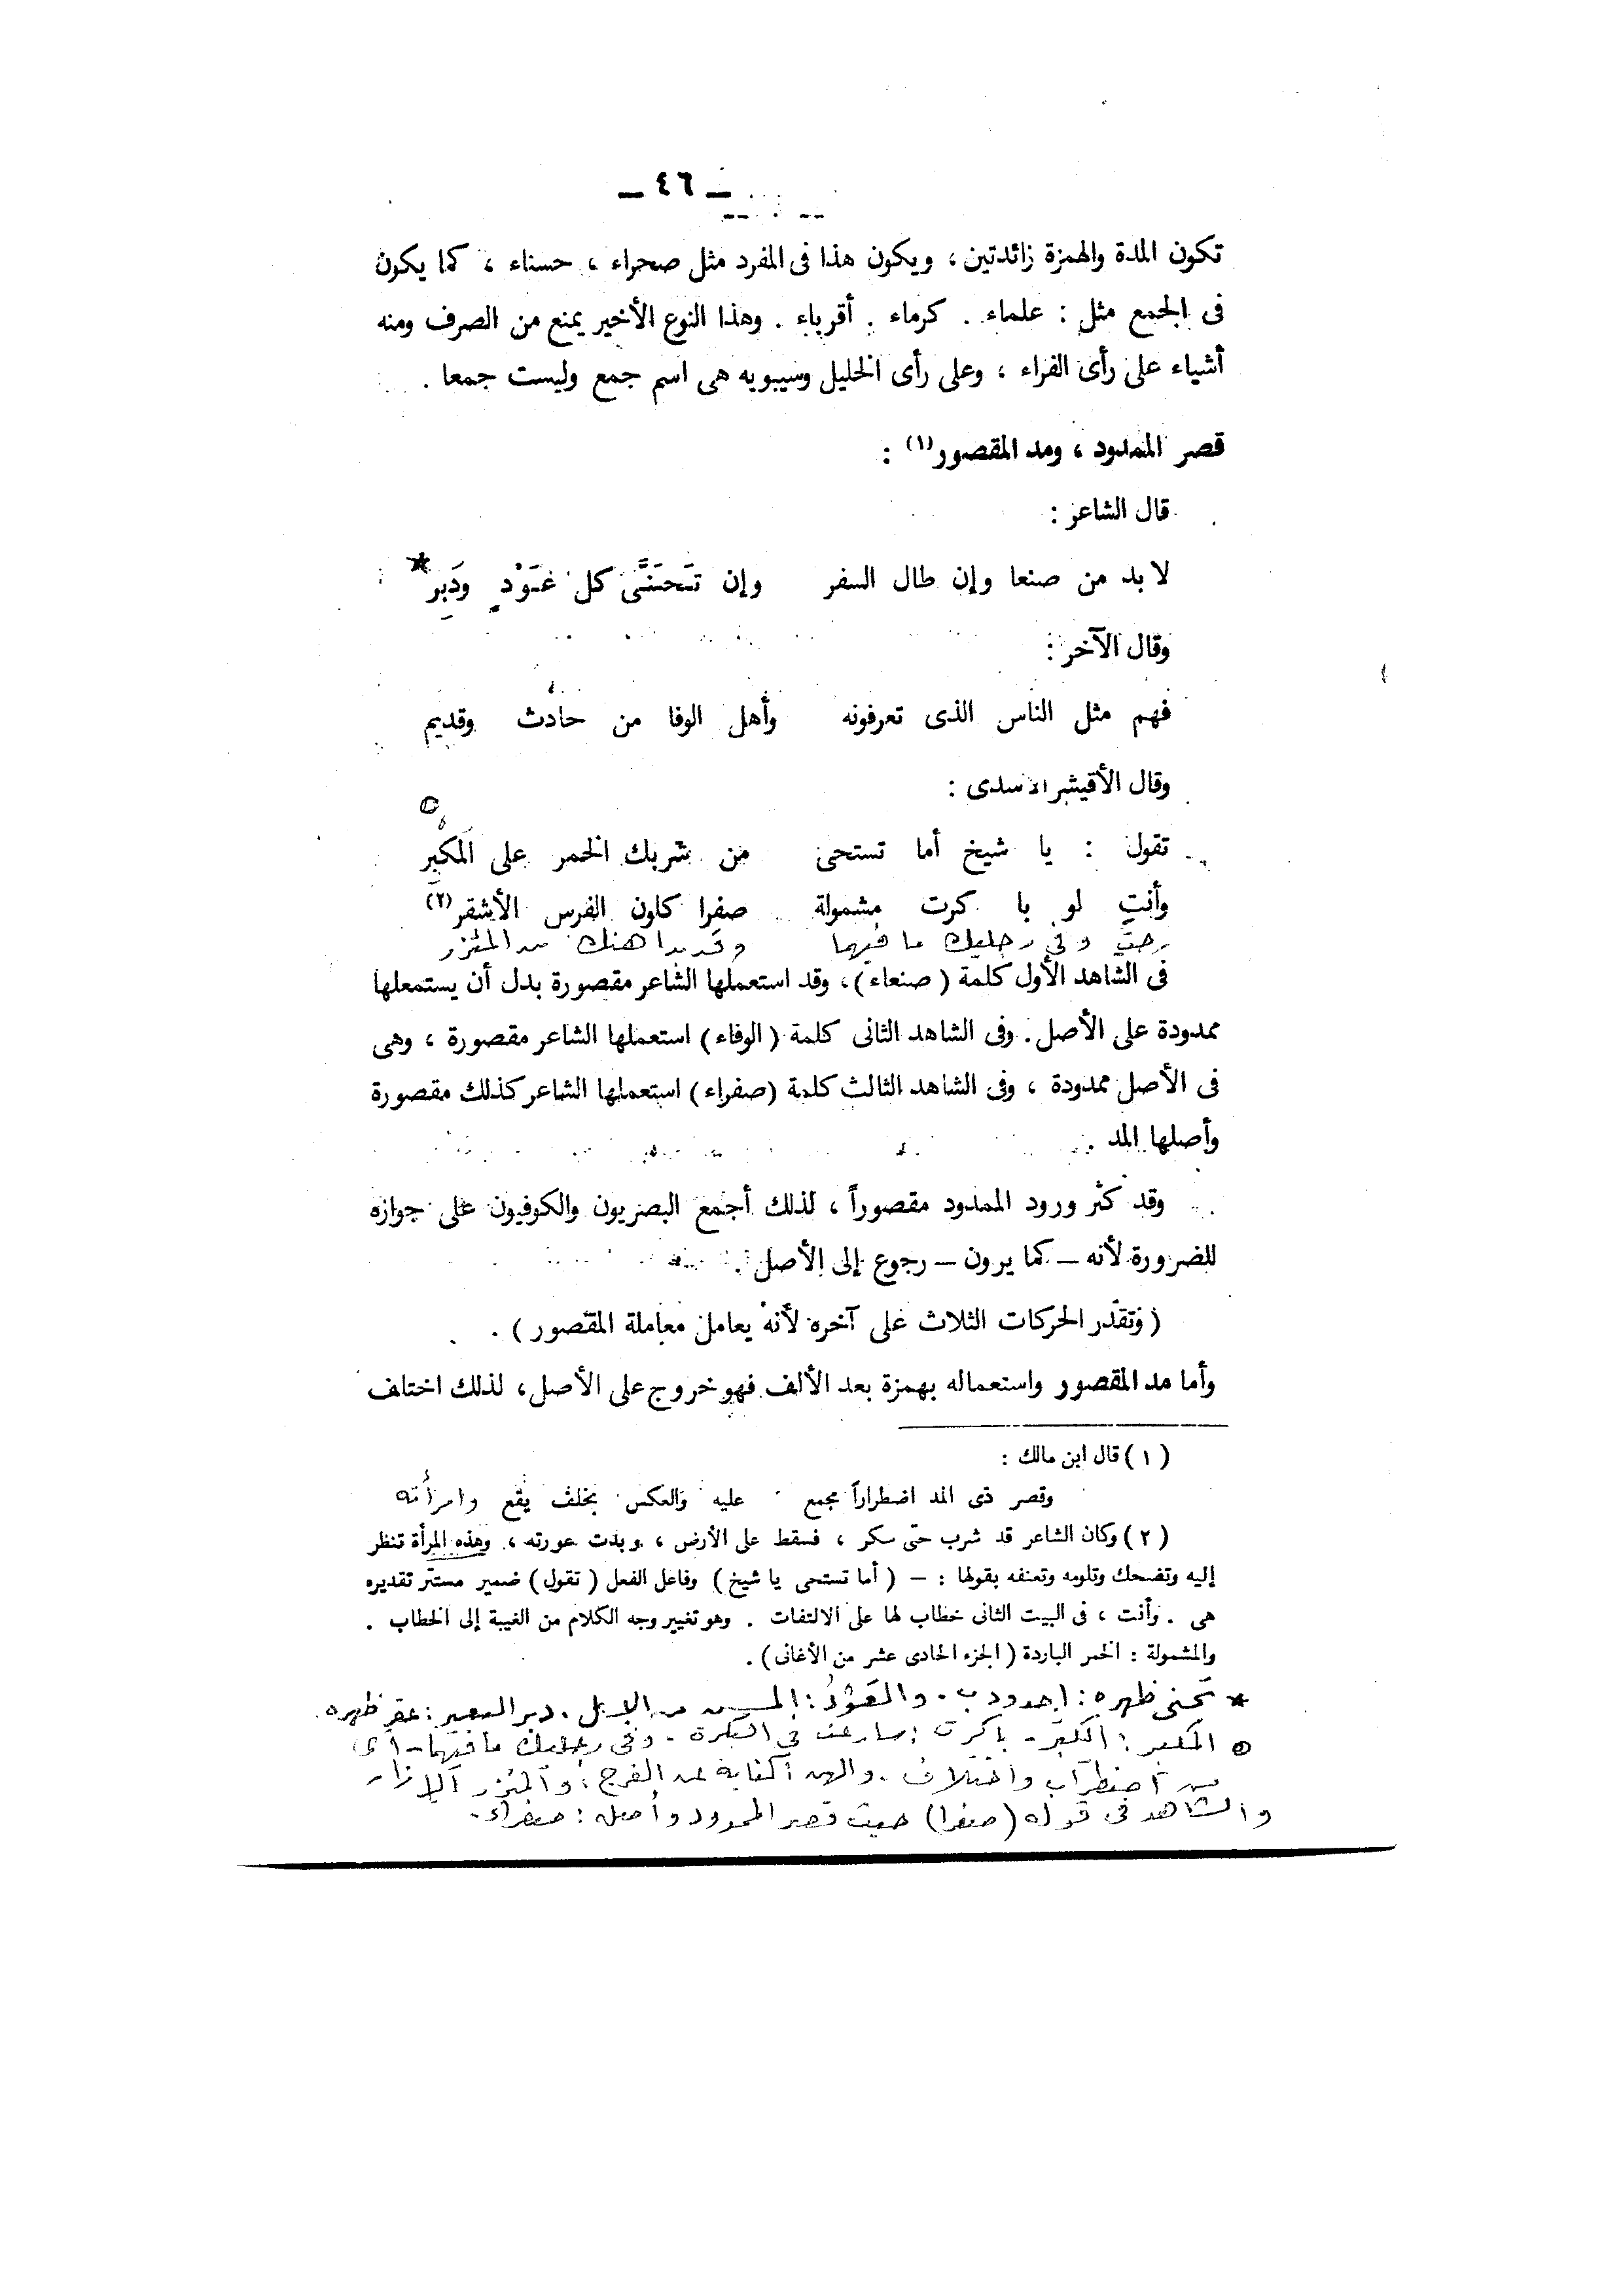 ـ ٤٦ ـ
تكون المدة والهمزة زائدتين ، ويكون هذا فى المفرد مثل صحراء ، حسناء ، كما يكون
فى الجمع مثل : علماء . كرماء . أقرباء . وهذا النوع الأخير يمنع من الصرف ومنه
أشياء على رأى الفراء ، وعلى رأى الخليل وسيبويه هى اسم جمع وليست جمعا .
قصر الممدود ، ومد المقصور (١) :
قال الشاعر :
لا بد من صنعا وإن طال السفر وإن تَحَنَّى كل عَوْدٍ ودَبِر *
وقال الآخر :
فهم مثل الناس الذى تعرفونه وأهل الوفا من حادث وقديم
وقال الأقيشر الأسدى :
تقول : يا شيخ أما تستحى من شربك الخمر على المَكبِر
وأنتِ لو با كرت مشمولة صفرا كلون الفرس الأشقر (٢)
رحتِ وفى رجليك ما فيهما وقد بدا هنك من المئزر
فى الشاهد الأول كلمة ( صنعاء ) ، وقد استعملها الشاعر مقصورة بدل أن يستمعلها
ممدودة على الأصل . وفى الشاهد الثانى كلمة ( الوفاء ) استعملها الشاعر مقصورة ، وهى
فى الأصل ممدودة ، وفى الشاهد الثالث كلمة ( صفراء ) استعملها الشاعر كذلك مقصورة
وأصلها المد .
وقد كثر ورود الممدود مقصوراً ، لذلك أجمع البصريون والكوفيون على جوازه
للضرورة لأنه ـ كما يرون ـ رجوع إلى الأصل .
( وتقدّر الحركات الثلاث على آخره لأنه يعامل معاملة المقصور ) .
وأما مد المقصور واستعماله بهمزة بعد الألف فهو خروج على الأصل ، لذلك اختلف
( ١ ) قال ابن مالك :
وقصر ذى المد اضطراراً مجمع عليه والعكس بخلف يقع وامرأته
( ٢ ) وكان الشاعر قد شرب حتى سكر ، فسقط على الأرض ، وبدت عورته ، وهذه المرأة تنظر
إليه وتضحك وتلومه وتعنفه بقولها : ـ ( أما تستحى يا شيخ ) وفاعل الفعل ( تقول ) ضمير مستتر تقديره
هى . وأنت ، فى البيت الثانى خطاب لها على الالتفات . وهو تغيير وجه الكلام من الغيبة إلى الخطاب .
والمشمولة : الخمر الباردة ( الجزء الحادى عشر من الأغانى ) .
* تحنى ظهره : احدودب . والعَوْدُ : المسن من الإبل . دبر البعير : عقر ظهره .
المكبر : الكبر - باكرت : سارعت فى البكرة . وفى رجليك ما فيهما - أى
من اضطراب واختلاف . والهن كناية عن الفرج ، والمئزر الإزار
والشاهد فى قوله ( صفرا ) حيث قصر الممدود وأصله : صفراء .